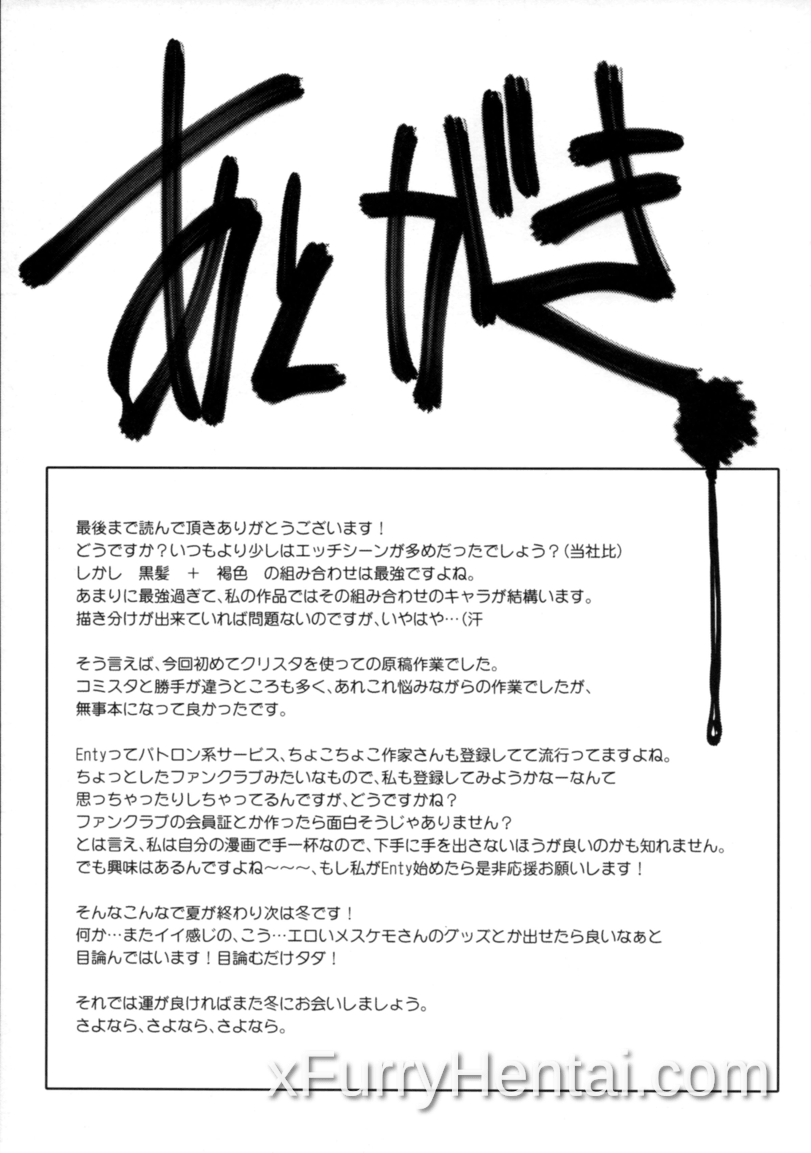 あとがき
最後まで読んで頂きありがとうございます！
どうですか？いつもより少しはエッチシーンが多めだったでしょう？(当社比)
しかし　黒髪　＋　褐色　の組み合わせは最強ですよね。
あまりに最強過ぎて、私の作品ではその組み合わせのキャラが結構います。
描き分けが出来ていれば問題ないのですが、いやはや…(汗
そう言えば、今回初めてクリスタを使っての原稿作業でした。
コミスタと勝手が違うところも多く、あれこれ悩みながらの作業でしたが、
無事本になって良かったです。
Entyってパトロン系サービス、ちょこちょこ作家さんも登録してて流行ってますよね。
ちょっとしたファンクラブみたいなもので、私も登録してみようかなーなんて
思っちゃったりしちゃってるんですが、どうですかね？
ファンクラブの会員証とか作ったら面白そうじゃありません？
とは言え、私は自分の漫画で手一杯なので、下手に手を出さないほうが良いのかも知れません。
でも興味はあるんですよね～～～、もし私がEnty始めたら是非応援お願いします！
そんなこんなで夏が終わり次は冬です！
何か…またイイ感じの、こう…エロいメスケモさんのグッズとか出せたら良いなぁと
目論んではいます！目論むだけタダ！
それでは運が良ければまた冬にお会いしましょう。
さよなら、さよなら、さよなら。
xFurryHentai.com